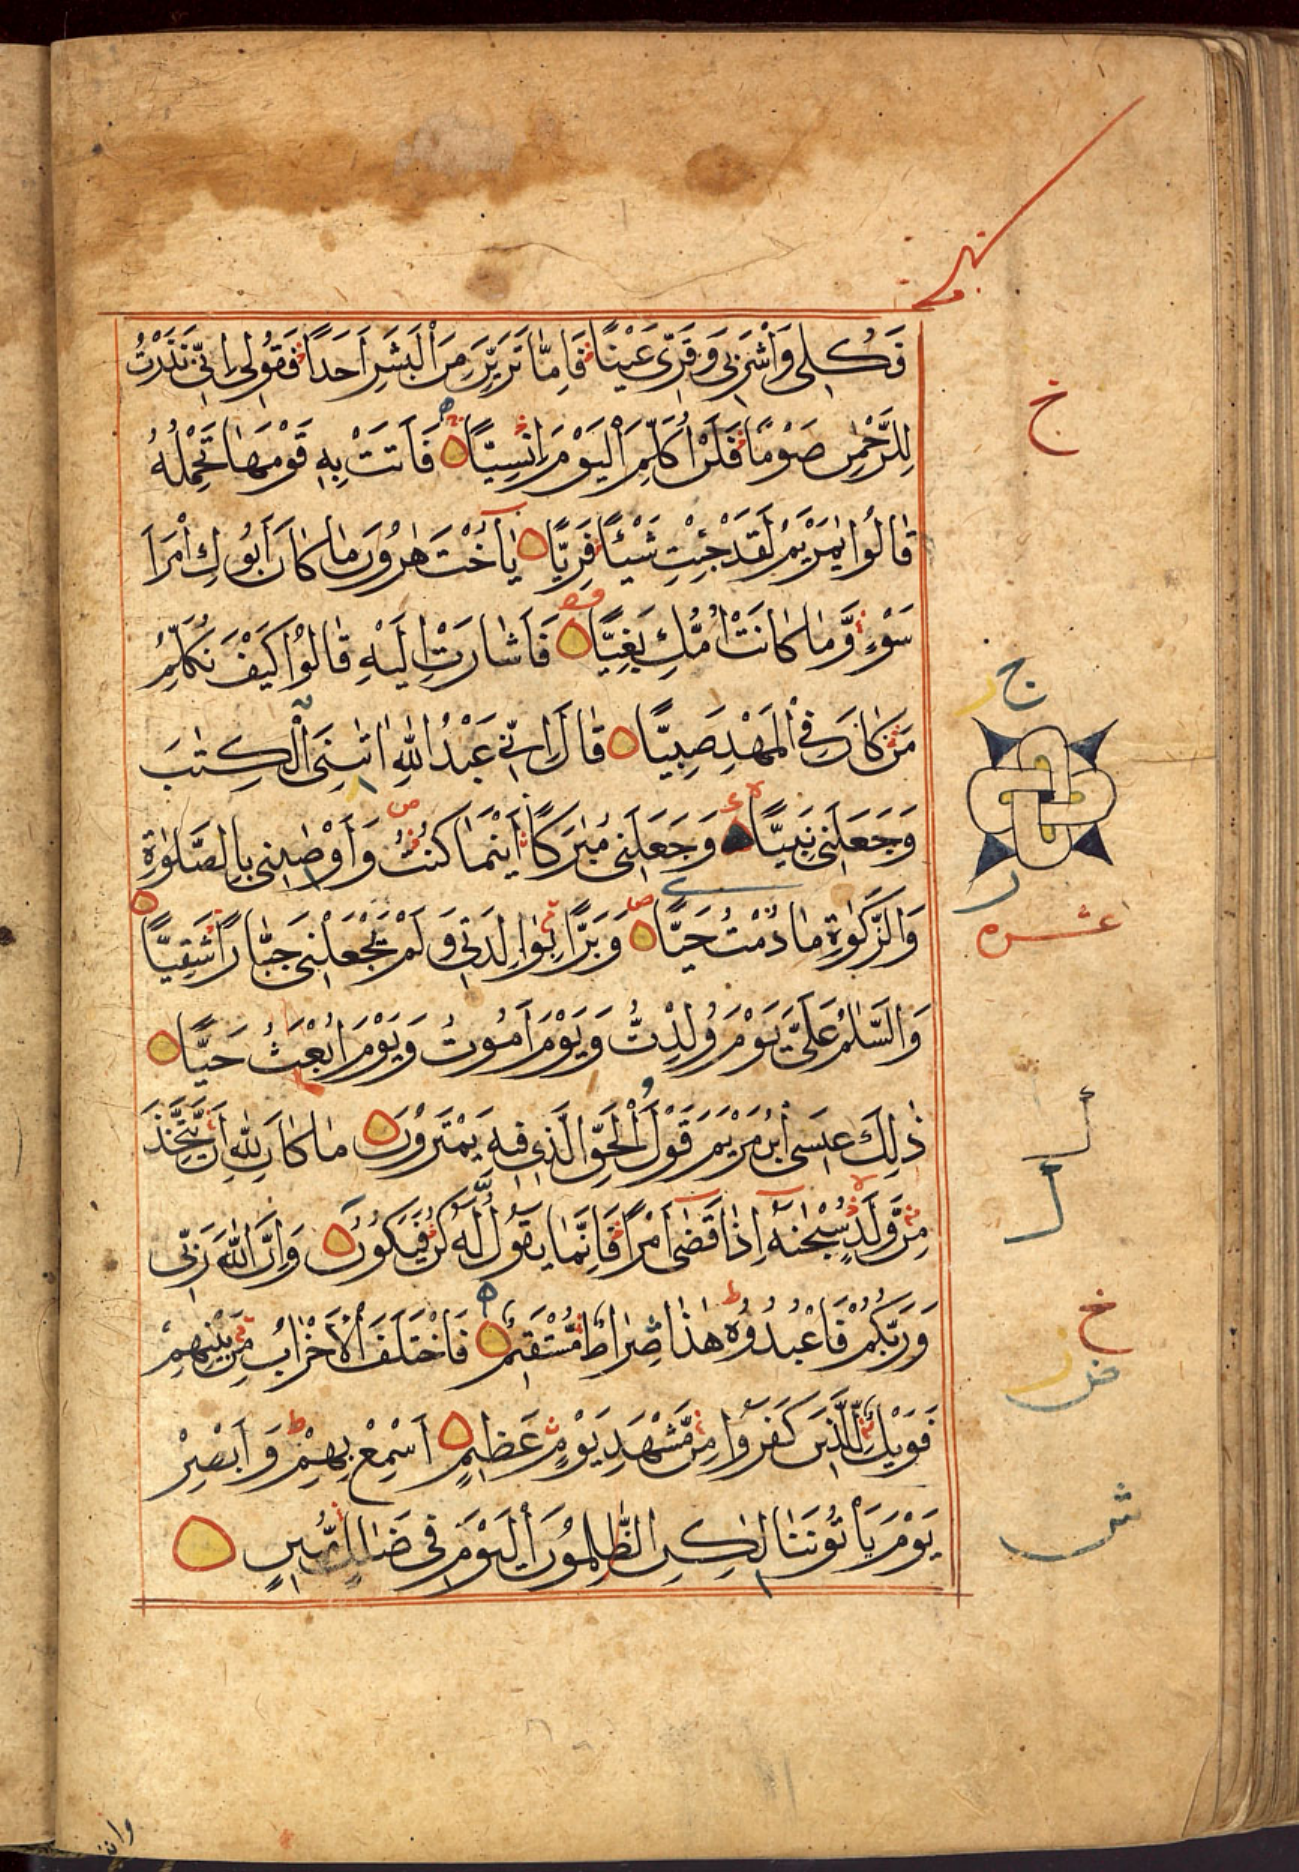 فَكُلِي وَاشْرَبِي وَقَرِّي عَيْنًا فَاِمَّا تَرَيِنَّ مِنَ الْبَشَرِ اَحَدًا فَقُولِي اِنِّي نَذَرْتُ
خ
لِلرَّحْمٰنِ صَوْمًا فَلَنْ اُكَلِّمَ الْيَوْمَ اِنْسِيًّا فَاَتَتْ بِهٖ قَوْمَهَا تَحْمِلُهُ
قَالُوا يٰمَرْيَمُ لَقَدْ جِئْتِ شَيْئًا فَرِيًّا يٰاُخْتَ هٰرُونَ مَا كَانَ اَبُوكِ امْرَاَ
سَوْءٍ وَّمَا كَانَتْ اُمُّكِ بَغِيًّا فَاَشَارَتْ اِلَيْهِ قَالُوا كَيْفَ نُكَلِّمُ
ج ر
مَنْ كَانَ فِي الْمَهْدِ صَبِيًّا قَالَ اِنِّي عَبْدُ اللّٰهِ اٰتٰىنِيَ الْكِتٰبَ
وَجَعَلَنِي نَبِيًّا وَجَعَلَنِي مُبٰرَكًا اَيْنَمَا كُنْتُ وَاَوْصٰىنِي بِالصَّلٰوةِ
ر
عشره
وَالزَّكٰوةِ مَا دُمْتُ حَيًّا وَبَرًّا بِوَالِدَتِي وَلَمْ يَجْعَلْنِي جَبَّارًا شَقِيًّا
وَالسَّلٰمُ عَلَيَّ يَوْمَ وُلِدْتُّ وَيَوْمَ اَمُوتُ وَيَوْمَ اُبْعَثُ حَيًّا
ذٰلِكَ عِيسَى ابْنُ مَرْيَمَ قَوْلَ الْحَقِّ الَّذِي فِيهِ يَمْتَرُونَ مَا كَانَ لِلّٰهِ اَنْ يَّتَّخِذَ
مِنْ وَّلَدٍ سُبْحٰنَهُ اِذَا قَضٰى اَمْرًا فَاِنَّمَا يَقُولُ لَهُ كُنْ فَيَكُونُ وَاِنَّ اللّٰهَ رَبِّي
وَرَبُّكُمْ فَاعْبُدُوهُ هٰذَا صِرَاطٌ مُّسْتَقِيمٌ فَاخْتَلَفَ الْاَحْزَابُ مِنْ بَيْنِهِمْ
خ
ض ر
فَوَيْلٌ لِّلَّذِينَ كَفَرُوا مِنْ مَّشْهَدِ يَوْمٍ عَظِيمٍ اَسْمِعْ بِهِمْ وَاَبْصِرْ
ش
يَوْمَ يَاْتُونَنَا لٰكِنِ الظّٰلِمُونَ الْيَوْمَ فِي ضَلَالٍ مُّبِينٍ